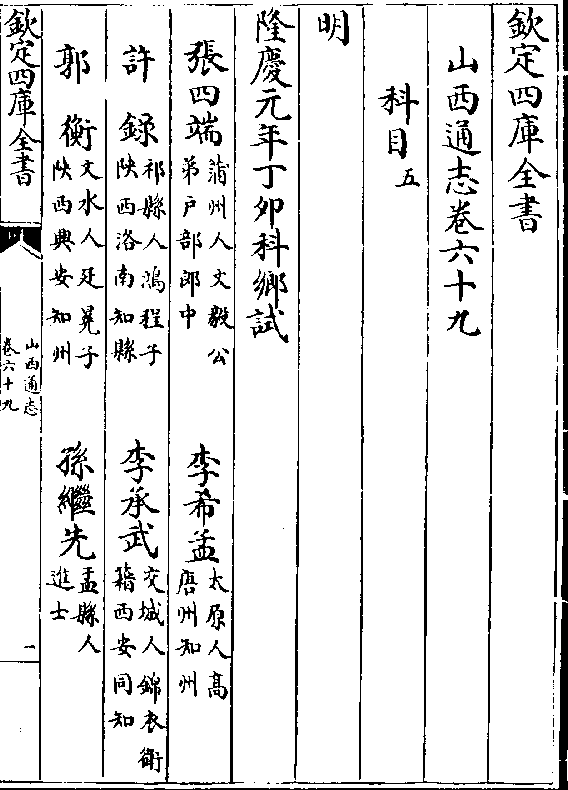 欽定四庫全書
山西通志卷六十九
科目五
明
隆慶元年丁卯科鄉試
張四端 蒲州人文毅公弟戶部郎中
李希孟 太原人高唐州知州
許錄 祁縣人鴻程子陜西洛南知縣
李承武 交城人錦衣衛籍西安同知
郭衡 文水人廷冕子陜西興安知州
孫繼先 盂縣人進士
欽定四庫全書
山西通志
卷六十九
一